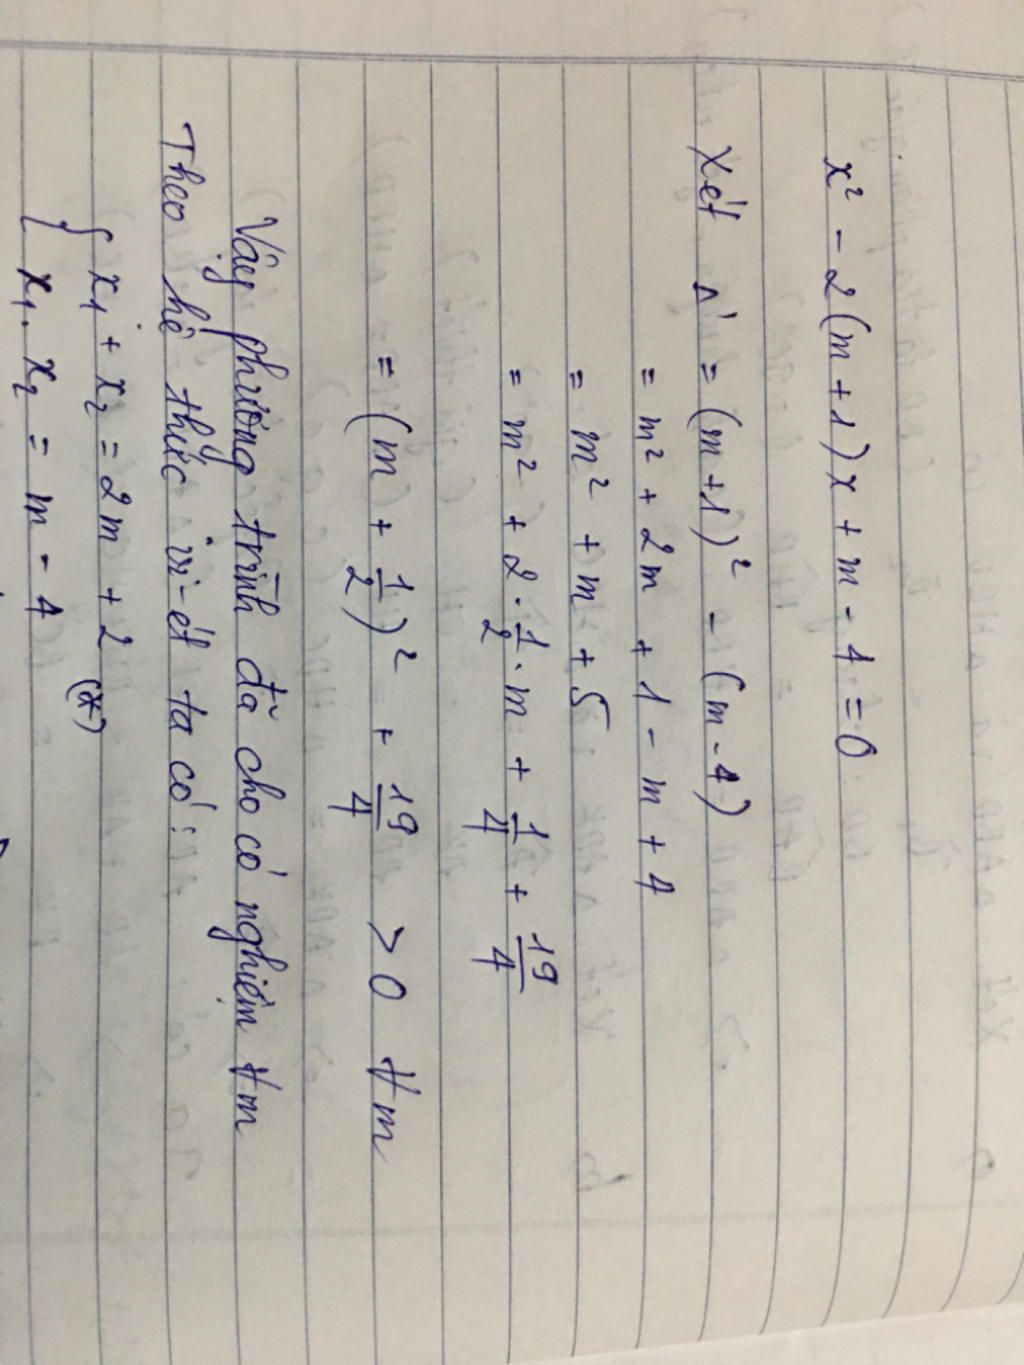 x² - 2(m+1)x + m - 4 = 0
Xét Δ' = (m+1)² - (m-4)
= m² + 2m + 1 - m + 4
= m² + m + 5
= m² + 2 . 1/2 . m + 1/4 + 19/4
= (m + 1/2)² + 19/4 > 0 ∀m
Vậy phương trình đã cho có nghiệm ∀m
Theo hệ thức vi-ét ta có:
{ x₁ + x₂ = 2m + 2 (*)
x₁ . x₂ = m - 4